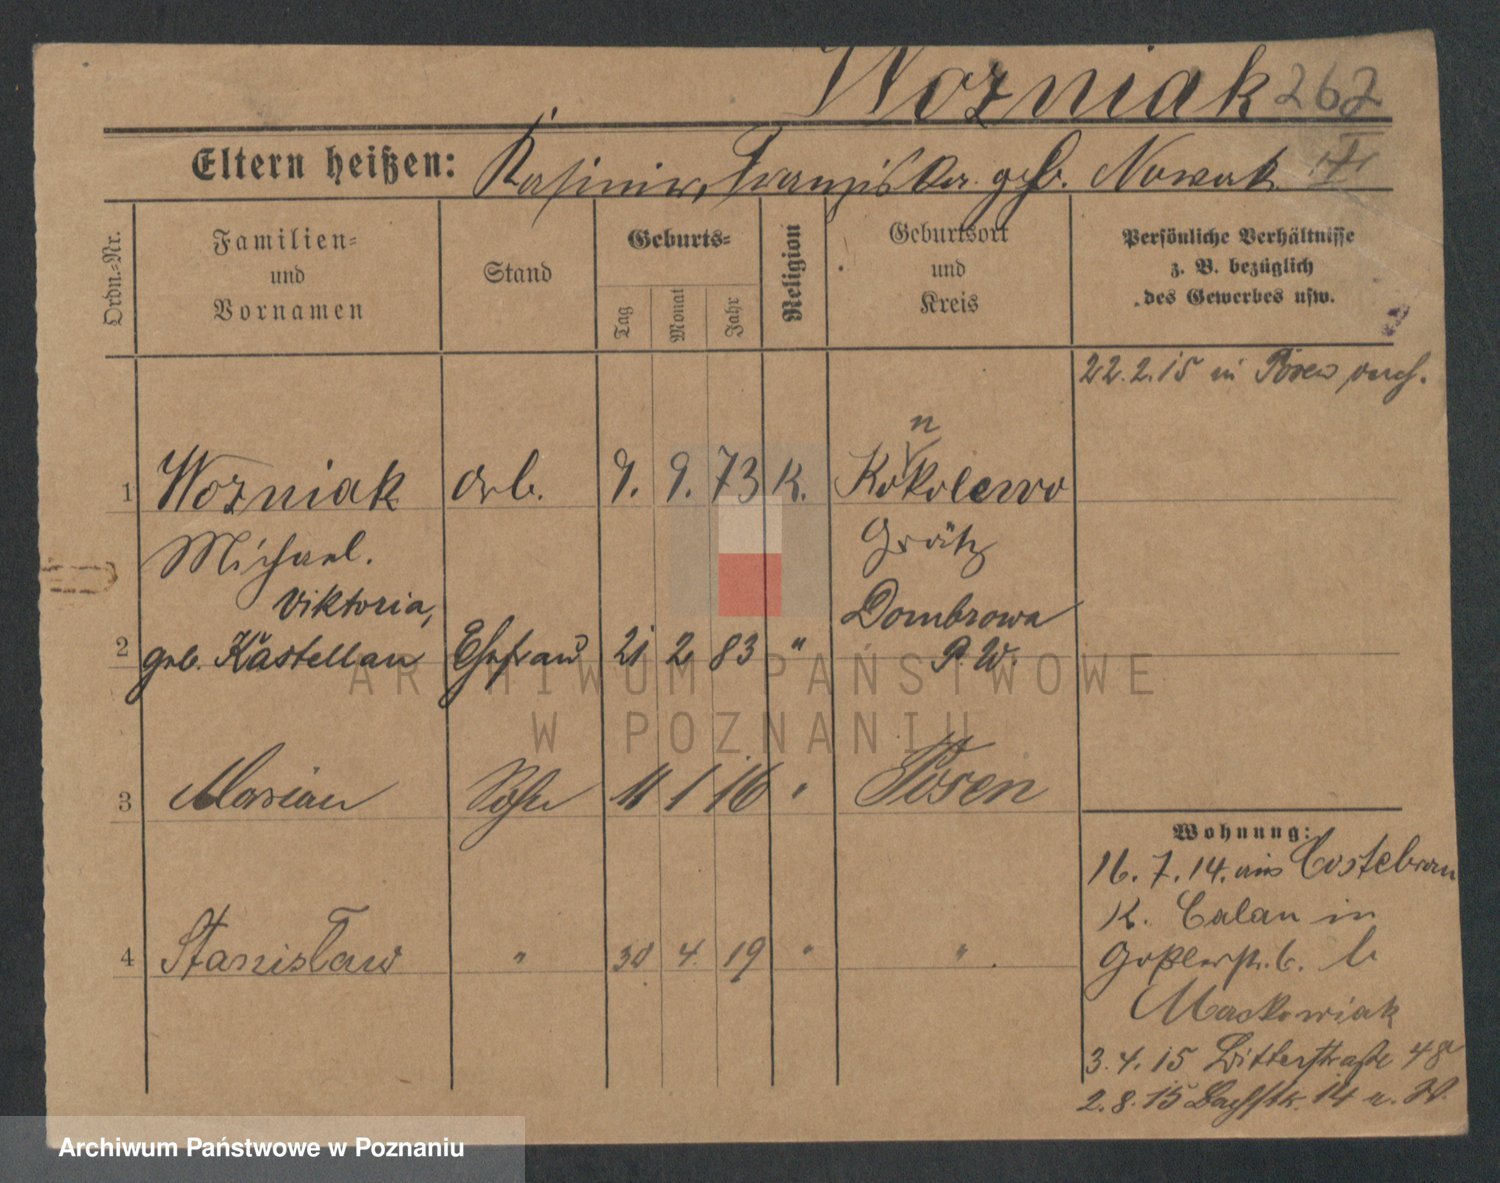 Wozniak 262
Eltern heißen: Kasimir, Franziska geb. Nowak
Ordn.-Nr.
Familien-
und
Vornamen
Stand
Geburts-
Tag
Monat
Jahr
Religion
Geburtsort
und
Kreis
Persönliche Verhältnisse
z. B. bezüglich
des Gewerbes usw.
22.2.15 in Posen
n
1 Wozniak Arb. 9. 9. 73 K. Kokolewo
Michael. Grätz
Viktoria, Dombrowa
2 geb. Kastellan Ehefrau 21 2 83 " P. W.
3 Marian Sohn 11 1 16 " Posen
Wohnung:
16. 7. 14. aus Costebrau
K. Calau in
4 Stanisław " 30 4. 19 " "
Goßlerstr. 6. b
Mackowiak
3. 4. 15 Bitterstraße 48
2. 8. 15 14 u. W.
ARCHIWUM PAŃSTWOWE
W POZNANIU
Archiwum Państwowe w Poznaniu